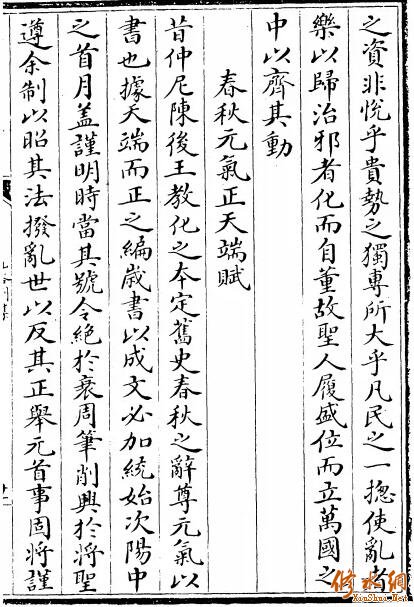 之資非悅乎貴勢之獨專所大乎凡民之一揔使亂者
樂以歸治邪者化而自董故聖人履盛位而立萬國之
中以齊其動
春秋元氣正天端賦
昔仲尼陳後王教化之本定舊史春秋之辭尊元氣以
書也據天端而正之編歳書以成文必加統始次陽中
之首月盖謹明時當其號令絕於衰周筆削興於將聖
遵余制以昭其法撥亂世以反其正舉元首事固將謹
修水網
XiuShui.Net